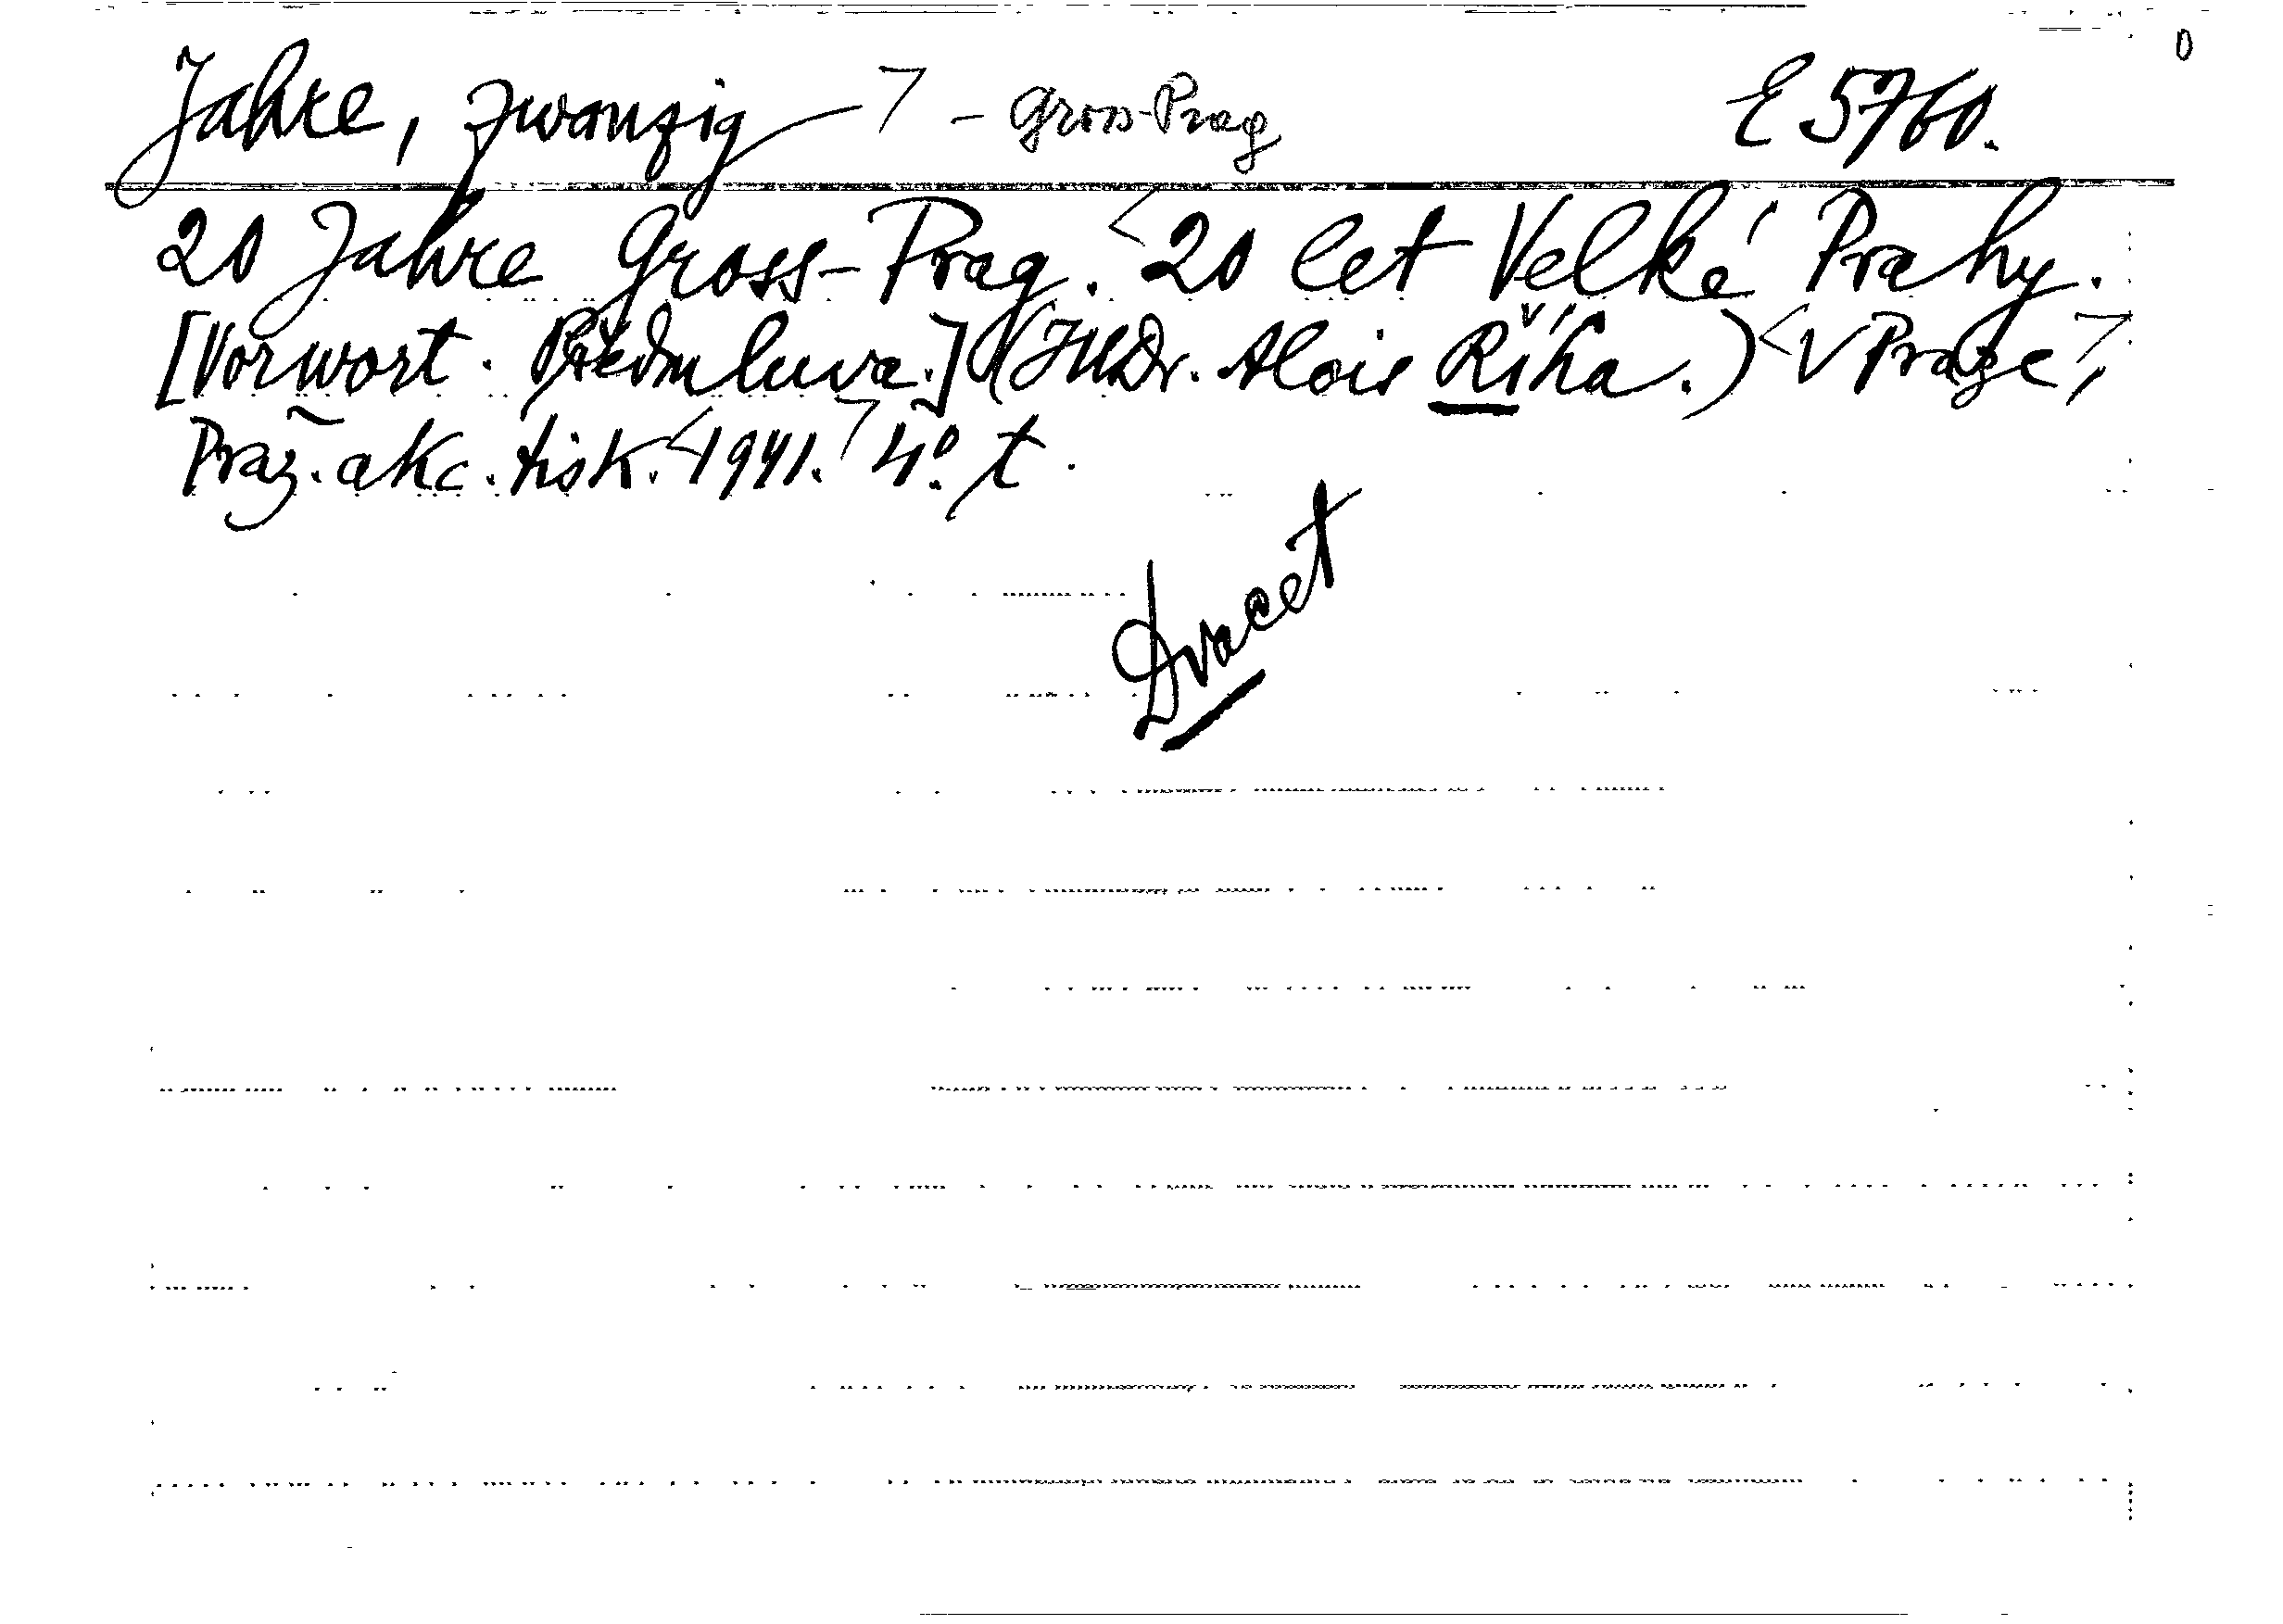 Jahre, zwanzig ⌉ - Gross-Prag E 5760.
20 Jahre Gross-Prag. <20 let Velké Prahy.
[Vorwort. Předmluva.] (JUDr. Alois Říha.) <V Praze⌉,
Praž. akc. tisk. <1941.⌉ 4°. t.
Dvacet